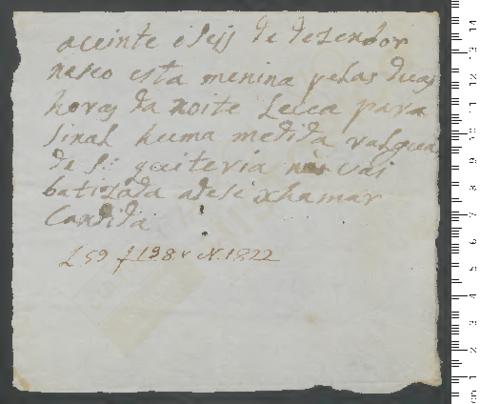 aceinte eseis de dezenbor
naseo esta menina pelas duas
horas da noite Leva para
sinal huma medida
de S.ta quiteria não vai
batizada adese xhamar
Candida
L 59 f 198 v N. 1822